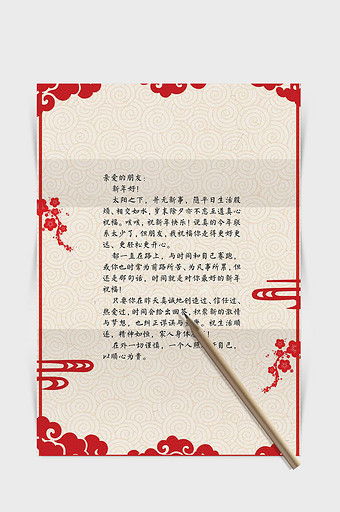 亲爱的朋友:
新年好!
太阳之下,并无新事,隔平日生活般
烦、相交如水,岁末除夕亦不忘互道真心
祝福。咳咳,祝新年快乐!说真的今年联
系太少了,但朋友,我祝福你是得更好更
达、更轻松更开心。
都一直在路上,与时间和自己赛跑,
或你也时常为前路所苦、为凡事所累,但
还是那句话,时间就是对你最好的新年
祝福!
只要你在昨天真诚地创造过、信任过、
热爱过,时间会给出回答,积聚新的激情
与梦想,也纠正谬误与
祝生活顺
遂,精神如恒,家人身体
在外一切谨慎,一个人照
自己,
以顺心为贵。